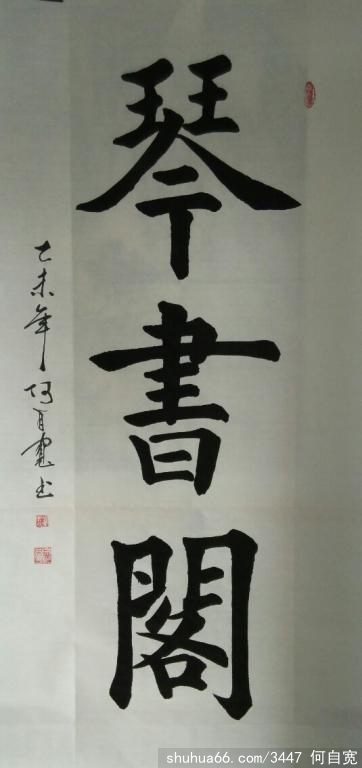 琴書閣
乙未年何自宽书
shuhua66.com/3447 何自宽